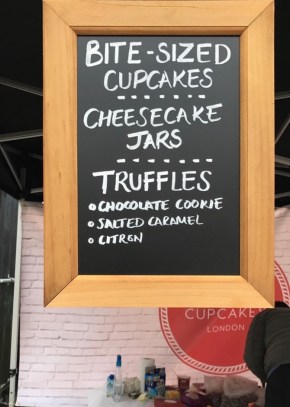 BITE-SIZED
CUPCAKES
CHEESECAKE
JARS
TRUFFLES
CHOCOLATE COOKIE
SALTED CARAMEL
CITRON
CUPCAKE
LONDON